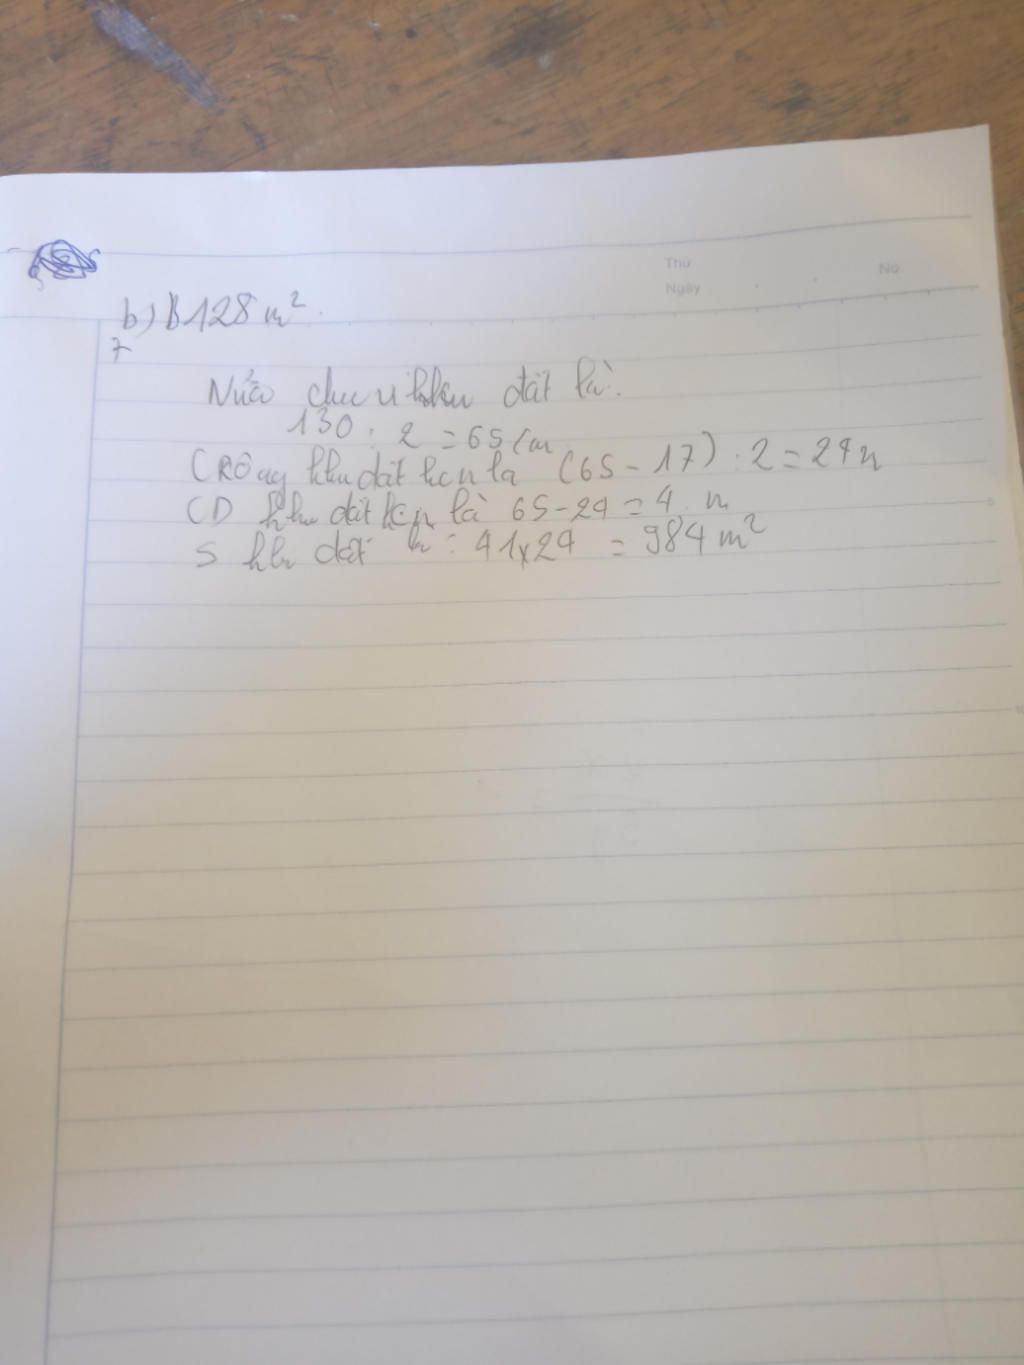 Thứ
Ngày
No
b) B 128 m²
7
Nửa chu vi khu đất là:
130 : 2 = 65 (m
CRộng khu đất hcn là (65 - 17) : 2 = 24 m
CD khu đất hcn là 65 - 24 = 4 m
S khu đất là : 41 x 24 = 984 m²